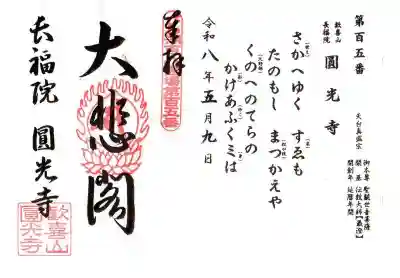 第百五番
歓喜山
長福院
圓光寺
天台真盛宗
御本尊 聖観世音菩薩
開基 伝教大師【最澄】
開創年 延暦年間
さかへゆく すゑも
たのもし まつかえや
くのへのてらの
かけあふくミは
令和八年五月九日
奉拝
第百五番
大悲閣
長福院 圓光寺
歓喜山
圓光寺